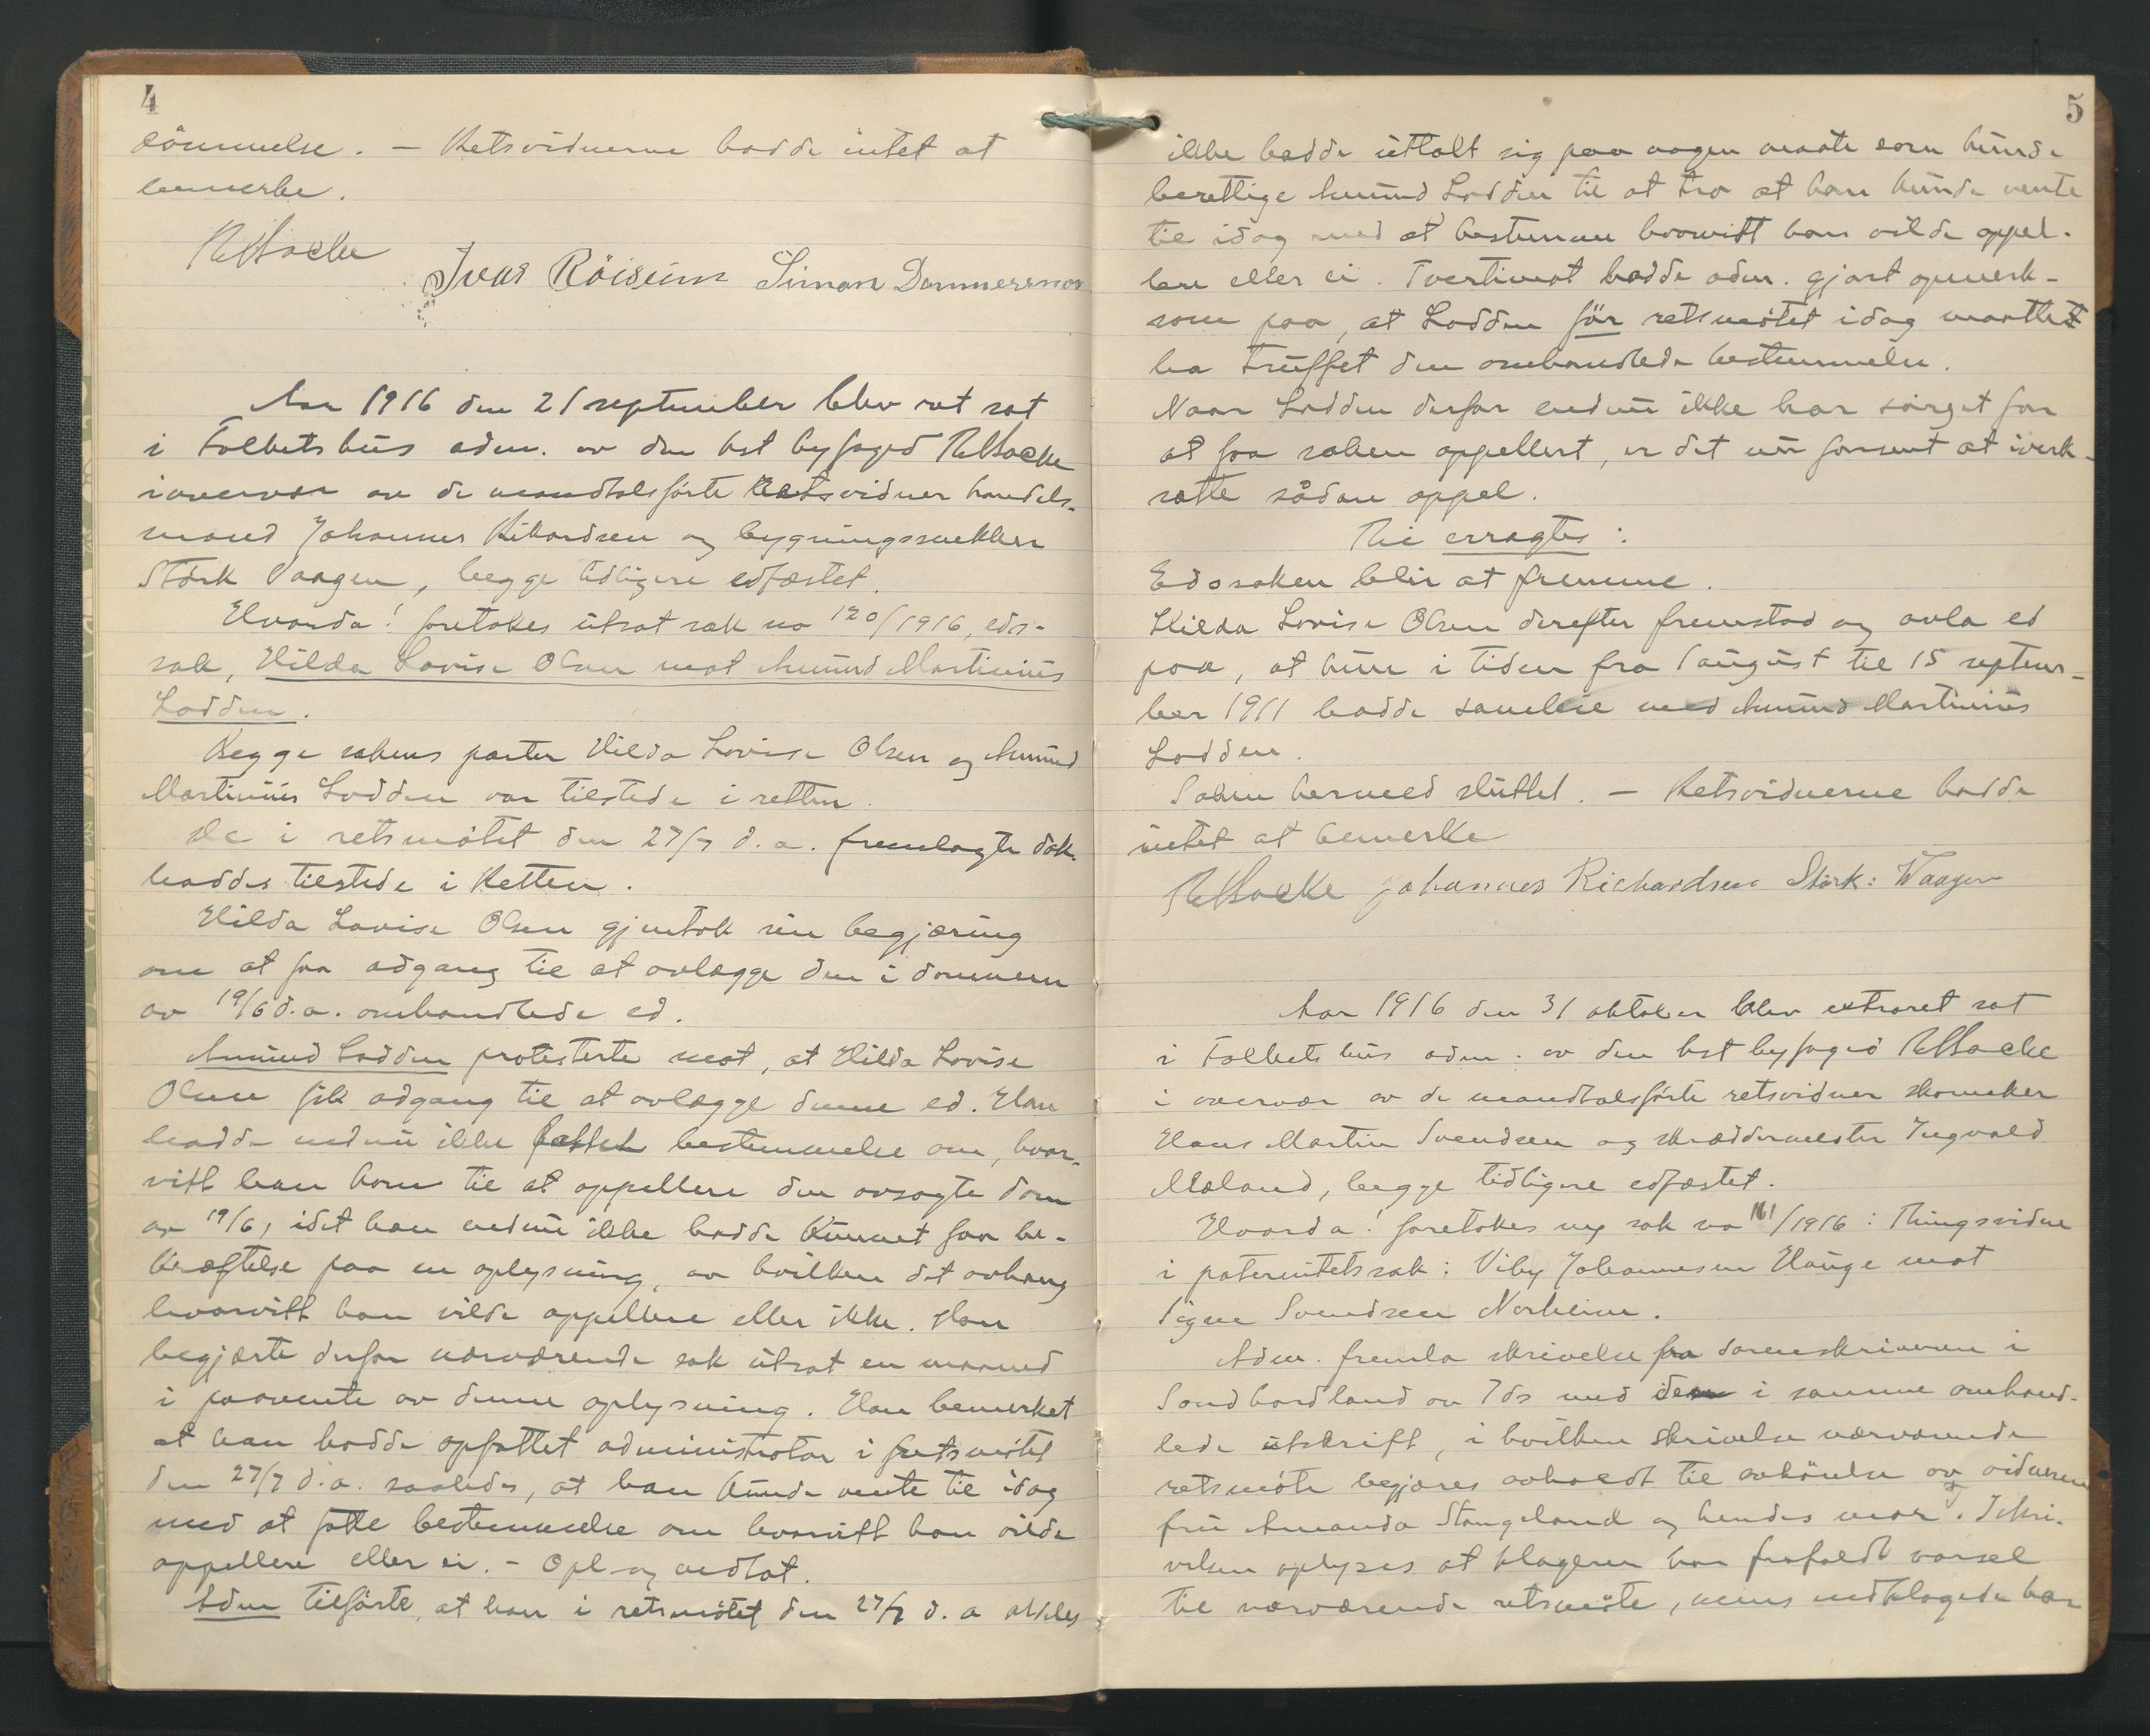 4
dömmelse. — Retsvidnerne hadde intet at
bemerke.
Ivar Röiseim Simon Dammersmor
Aar 1916 den 21 september blev ret sat
i Folkets hus adm. av den kst byfoged
iovervær av de mandtalsförte Retsvidner handels-
mand Johannes Rikardsen og bygningssnekker
Störk Vaagen, begge tidligere edfæstet.
Hvorda! foretokes utsat sak no 120/1916, eds-
sak, Hilda Lovise Olsen mot Amund Martinius
Lodden.
Begge sakens parter Hilda Lovise Olsen og Amund
Martinius Lodden var tilstede i retten.
De i retsmötet den 27/7 d.a. fremlagte dok.
haddes tilstede i Retten.
Hilda Lovise Olsen gjentok sin begjæring
om at faa adgang til at avlægge den i dommen
av 19/6 d.a. omhandlede ed.
Amund Lodden protesterte mot, at Hilda Lovise
Olsen fik adgang til at avlægge denne ed. Han
hadde endnu ikke fattet bestemmelse om, hvor-
vitt han kom til at appellere den avsagte dom
av 19/6, idet han endnu ikke hadde kunnet faa be-
kræftelse paa en oplysning, av hvilken det avhang
hvorvitt han vilde appellere eller ikke. Han
begjærte derfor nærværende sak utsat en maaned
i paavente av denne oplysning. Han bemerket
at han hadde opfattet administrator i retsmötet
den 27/7 d.a. saaledes, at han kunde vente til idag
med at fatte bestemmelse om hvorvitt han vilde
appellere eller ei. – Opl. og vedtat.
Adm tilförte, at han i retsmötet den 27/7 d. a aldeles
5
ikke hadde uttalt sig paa nogen maate som kunde
berettige Amund Lodden til at tro at han kunde vente
til idag med at bestemme hvorvitt han vilde appel-
lere eller ei. Tvertimot hadde adm. gjort opmerk-
som paa, at Lodden för retsmötet idag maatte
ha truffet den omhandlede bestemmelse.
Naar Lodden derfor endnu ikke har sörget for
at faa saken appellert, er det nu forsent at iverk-
sætte sådan appel.
Ti erragtes:
Edssaken blir at fremme.
Hilda Lovise Olsen derefter fremstod og avla ed
paa, at hun i tiden fra 1 august til 15 septem-
ber 1911 hadde samleie med Amund Martinius
Lodden.
Saken hermed sluttet. — Retsvidnerne hadde
intet at bemerke
Johannes Richardsen Störk: Waagen
Aar 1916 den 31 oktober blev extraret sat
i Folkets hus adm. av den kst byfoged
i overvær av de mandtalsförte retsvidner skomaker
Hans Martin Svendsen og skræddermester Ingvald
Mæland, begge tidligere edfæstet.
Hvorda! foretokes ny sak no 161/1916: Thingsvidne
i paternitetssak: Viby Johannesen Hauge mot
Signe Svendsen Norheim.
Adm. fremla skrivelse fra sorenskriveren i
Söndhordland av 7 ds med den i samme omhand-
lede utskrift, i hvilken skrivelse nærværende
retsmöte begjæres avholdt til avhörelse av vidnerne
fru Amanda Stangeland og hendes mor. I skri-
velsen oplyses at klageren har frafaldt varsel
til nærværende retsmöte, mens indklagede har